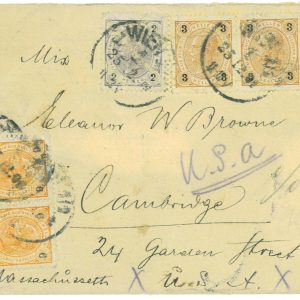 WIEN
2 3 3
Mix
Eleanor W Browne
U.S.a
Cambridge
6 6
24 Garden Street
Massachusetts X U.S.A. X